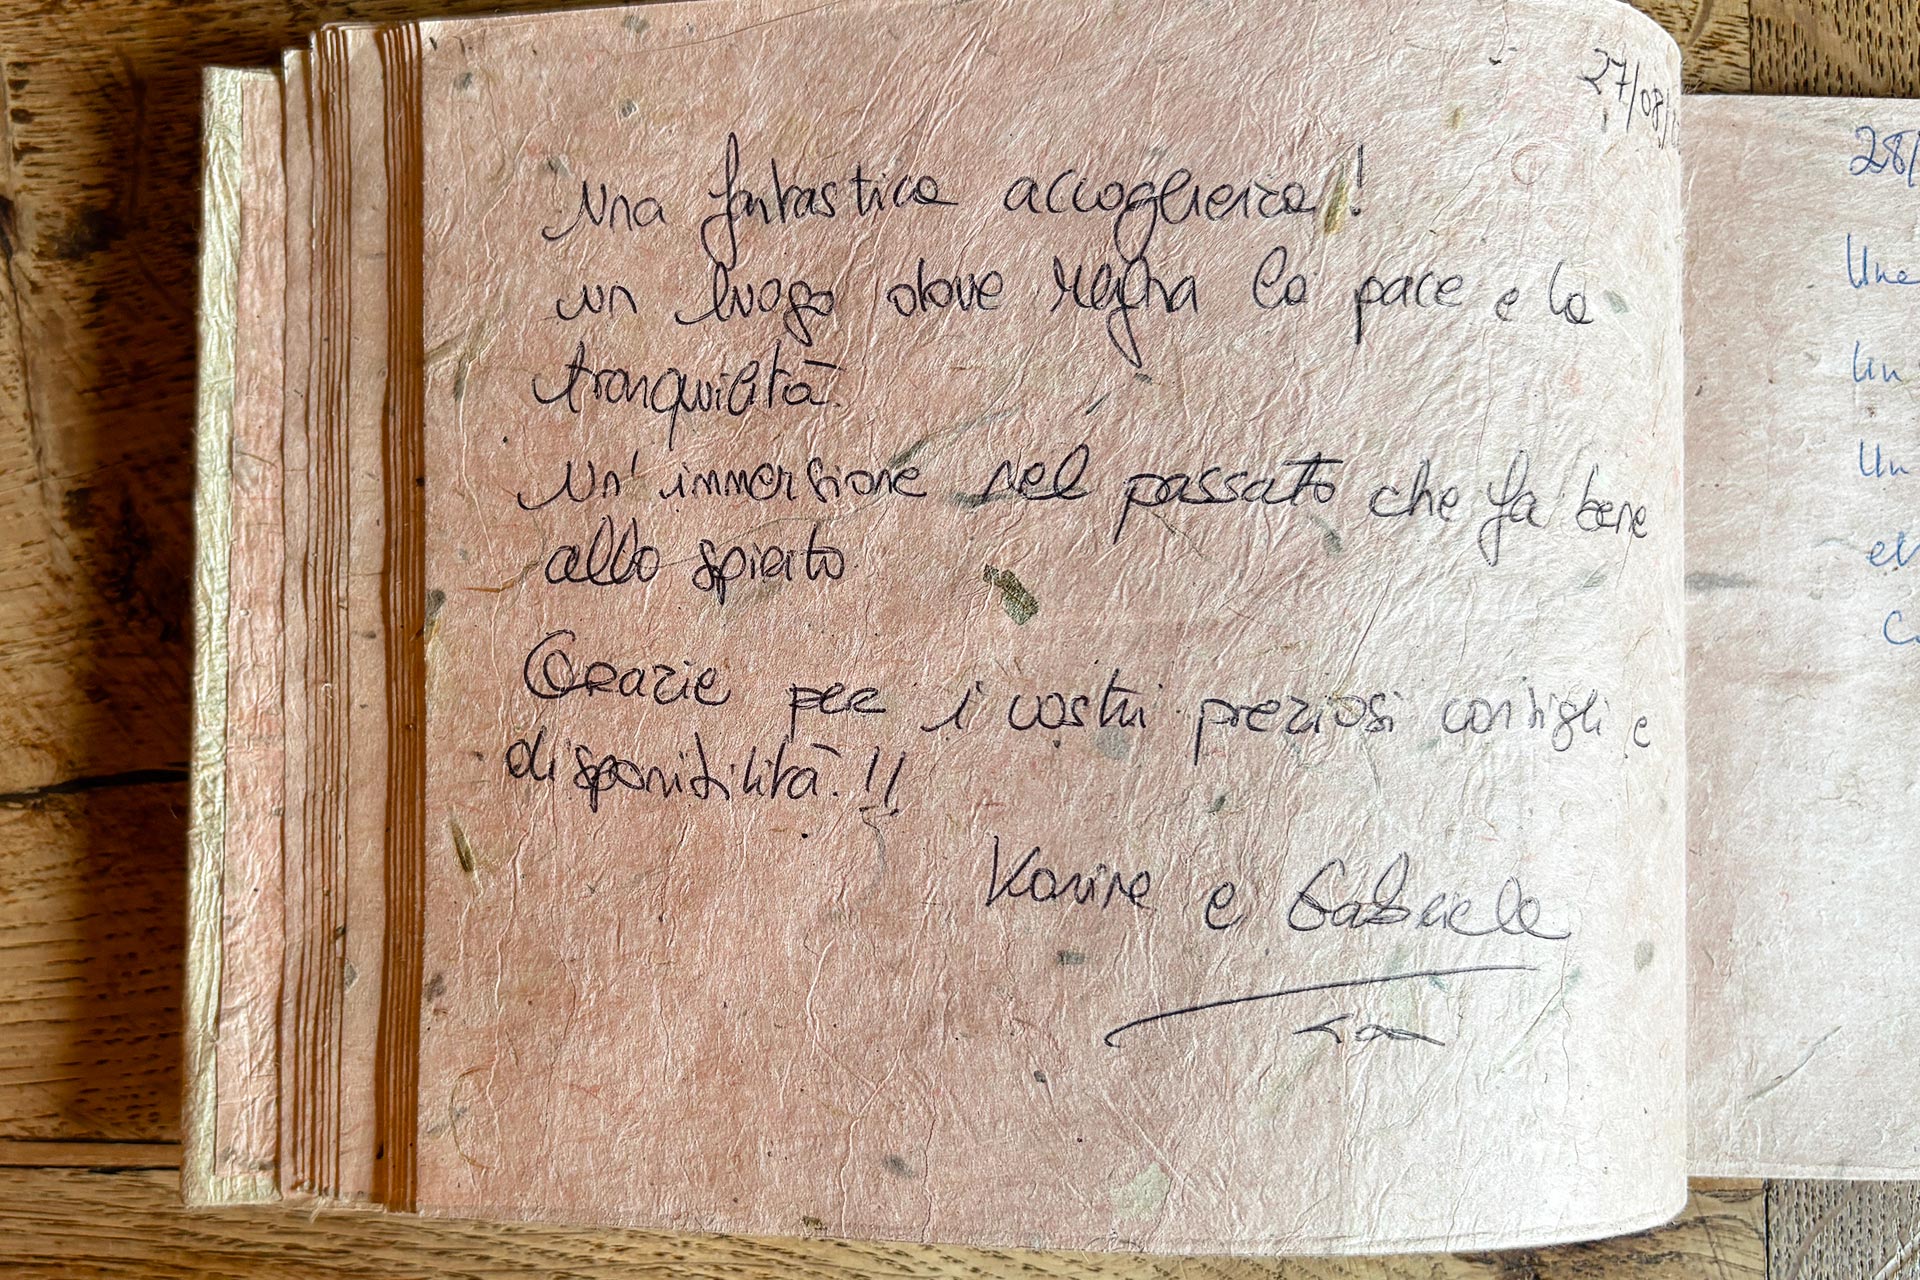 27/08/
Una fantastica accoglienza!
un luogo dove regna la pace e la
tranquilità.
Un'immersione nel passato che fa bene
allo spirito.
Grazie per i vostri preziosi consigli e
disponibilità.!!
Karine e Gabriele
28/
Une
Un
Un